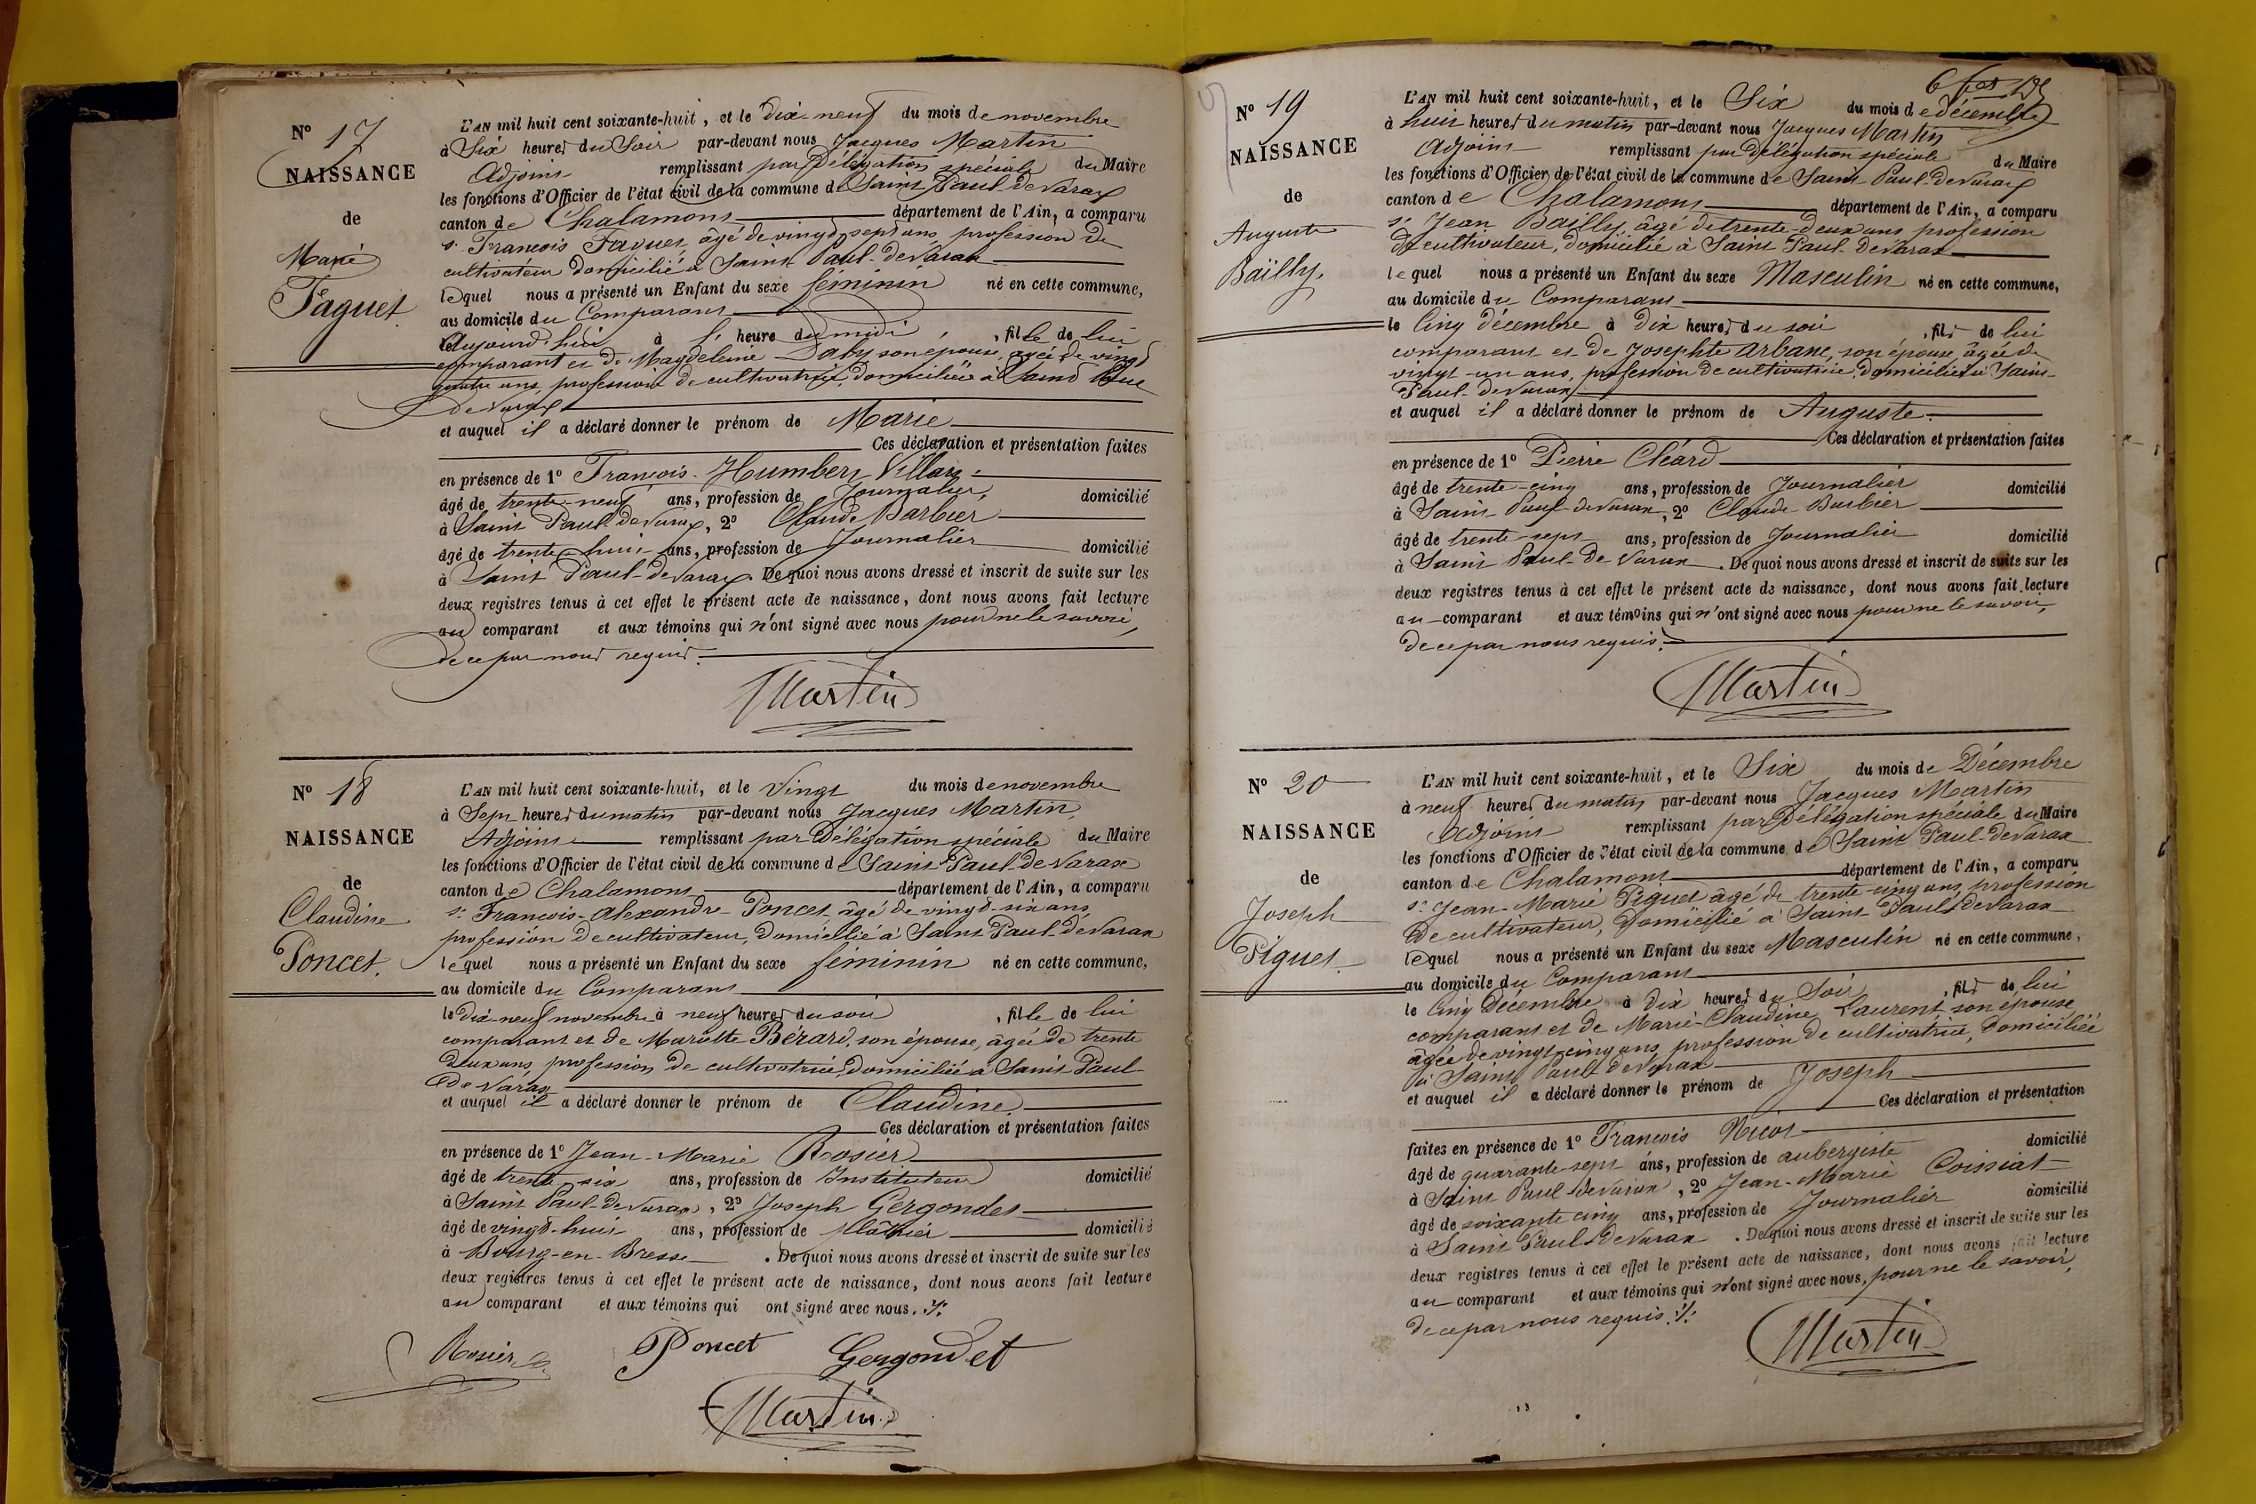 N° 17
NAISSANCE
de
Marie
Faguet.
L'AN mil huit cent soixante-huit, et le dix-neuf du mois de novembre
à Six heures du Soir par-devant nous Jacques Martin
Adjoint remplissant par Délégation spéciale du Maire
les fonctions d'Officier de l'état civil de la commune de Saint Paul de Varax
canton de Chalamont département de l'Ain, a comparu
sr François Faguet, âgé de vingt sept ans, profession de
cultivateur domicilié à Saint Paul-de Varax
lequel nous a présenté un Enfant du sexe féminin né en cette commune,
au domicile du Comparant
aujourd'hui à heure du midi, fille de lui
comparant et de Magdeleine son épouse, âgée de vingt
quatre ans, profession de cultivatrice, domiciliée à Saint Paul
de Varax
et auquel il a déclaré donner le prénom de Marie
Ces déclaration et présentation faites
en présence de 1° François-Humbert Villars
âgé de trente-neuf ans, profession de Journalier, domicilié
à Saint Paul de Varax, 2° Claude Barbier
âgé de trente-huit ans, profession de Journalier domicilié
à Saint Paul-de Varax. De quoi nous avons dressé et inscrit de suite sur les
deux registres tenus à cet effet le présent acte de naissance, dont nous avons fait lecture
au comparant et aux témoins qui n'ont signé avec nous pour ne le savoir,
de ce par nous requis.
Martin
N° 18
NAISSANCE
de
Claudine
Poncet.
L'AN mil huit cent soixante-huit, et le Vingt du mois de novembre
à Sept heures du matin par-devant nous Jacques Martin,
Adjoint remplissant par Délégation spéciale du Maire
les fonctions d'Officier de l'état civil de la commune de Saint Paul-de Varax
canton de Chalamont département de l'Ain, a comparu
sr François-Alexandre Poncet, âgé de vingt-six ans,
profession de cultivateur, domicilié à Saint Paul-de Varax
lequel nous a présenté un Enfant du sexe féminin né en cette commune,
au domicile du Comparant
le dix-neuf novembre à neuf heures du soir, fille de lui
comparant et de Mariette Bérard, son épouse, âgée de trente
deux ans, profession de cultivatrice, domiciliée à Saint Paul
de Varax
et auquel il a déclaré donner le prénom de Claudine.
Ces déclaration et présentation faites
en présence de 1° Jean-Marie Rosier
âgé de trente-six ans, profession de Instituteur domicilié
à Saint Paul-de Varax, 2° Joseph Gergondet
âgé de vingt-huit ans, profession de Plâtrier domicilié
à Bourg-en-Bresse. De quoi nous avons dressé et inscrit de suite sur les
deux registres tenus à cet effet le présent acte de naissance, dont nous avons fait lecture
au comparant et aux témoins qui ont signé avec nous.
Rosier Poncet Gergondet
Martin
N° 19
NAISSANCE
de
Auguste
Bailly.
L'AN mil huit cent soixante-huit, et le Six du mois de décembre
à huit heures du matin par-devant nous Jacques Martin
Adjoint remplissant par Délégation spéciale du Maire
les fonctions d'Officier de l'état civil de la commune de Saint-Paul-de Varax
canton de Chalamont département de l'Ain, a comparu
sr Jean Bailly, âgé de trente-deux ans, profession
de cultivateur, domicilié à Saint Paul-de Varax
lequel nous a présenté un Enfant du sexe Masculin né en cette commune,
au domicile du Comparant
le Cinq décembre à dix heures du soir, fils de lui
comparant et de Josephte Arbanc, son épouse, âgée de
vingt-un ans, profession de cultivatrice, domiciliée à Saint-
Paul-de Varax
et auquel il a déclaré donner le prénom de Auguste.
Ces déclaration et présentation faites
en présence de 1° Pierre Cléard
âgé de trente-cinq ans, profession de Journalier domicilié
à Saint Paul-de Varax, 2° Claude Barbier
âgé de trente-sept ans, profession de Journalier domicilié
à Saint Paul-de Varax. De quoi nous avons dressé et inscrit de suite sur les
deux registres tenus à cet effet le présent acte de naissance, dont nous avons fait lecture
au comparant et aux témoins qui n'ont signé avec nous pour ne le savoir,
de ce par nous requis.
Martin
N° 20
NAISSANCE
de
Joseph
Piguet
L'AN mil huit cent soixante-huit, et le Six du mois de Décembre
à neuf heures du matin par-devant nous Jacques Martin
Adjoint remplissant par Délégation spéciale du Maire
les fonctions d'Officier de l'état civil de la commune de Saint Paul-de Varax
canton de Chalamont département de l'Ain, a comparu
sr Jean-Marie Piguet âgé de trente-cinq ans, profession
de cultivateur, Domicilié à Saint Paul de Varax
lequel nous a présenté un Enfant du sexe Masculin né en cette commune,
au domicile du Comparant
le Cinq Décembre à dix heures du Soir, fils de lui
comparant et de Marie-Claudine Laurent, son épouse
âgée de vingt-cinq ans, profession de cultivatrice, Domiciliée
à Saint Paul de Varax
et auquel il a déclaré donner le prénom de Joseph
Ces déclaration et présentation
faites en présence de 1° François Nicot
âgé de quarante-sept ans, profession de aubergiste domicilié
à Saint Paul de Varax, 2° Jean-Marie Coissiat
âgé de soixante cinq ans, profession de Journalier domicilié
à Saint Paul de Varax. De quoi nous avons dressé et inscrit de suite sur les
deux registres tenus à cet effet le présent acte de naissance, dont nous avons fait lecture
au comparant et aux témoins qui n'ont signé avec nous, pour ne le savoir,
de ce par nous requis.
Martin